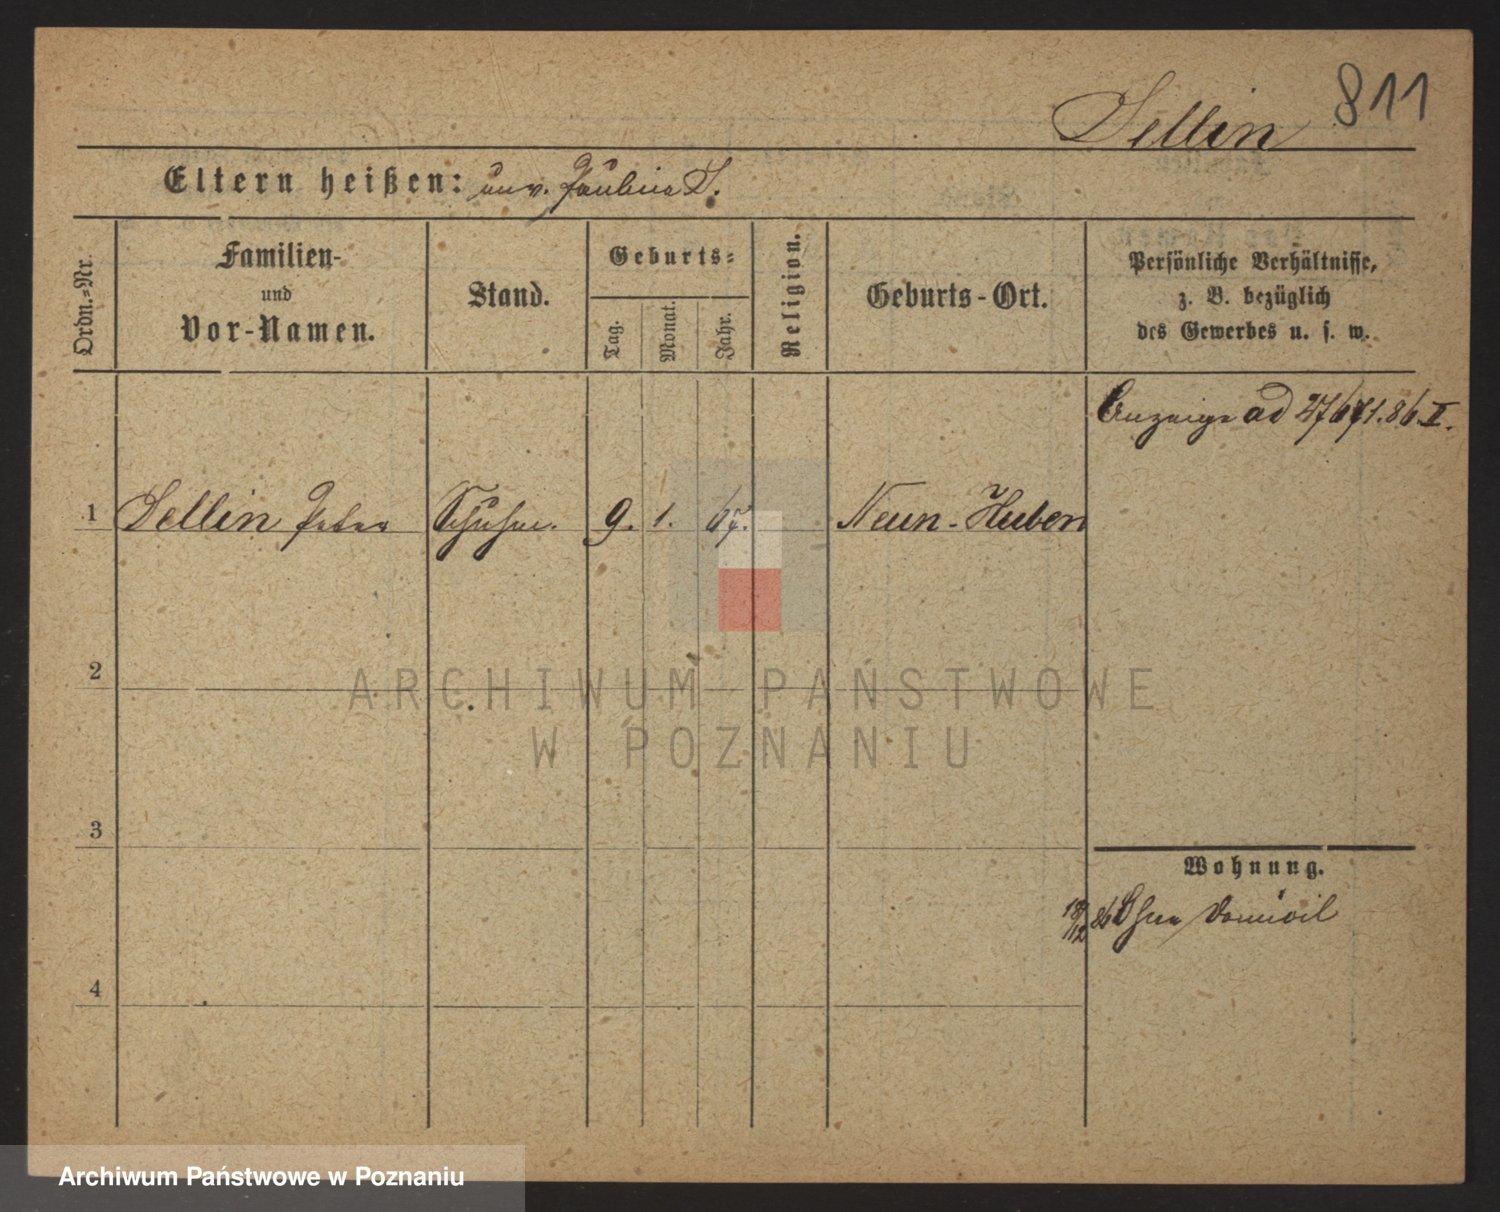 811
Sellin
Eltern heißen: unv. Pauline S.
Ordn.-Nr.
Familien-
und
Vor-Namen.
Stand.
Geburts-
Tag.
Monat.
Jahr.
Religion.
Geburts-Ort.
Persönliche Verhältnisse,
z. B. bezüglich
des Gewerbes u. s. w.
Anzeige ad 27671.86.II.
1 Sellin Peter 9. 1. 67. Neun-Huben
2
ARCHIWUM PAŃSTWOWE
W POZNANIU
3
Wohnung.
18/12 86 Ohne Domicil
4
Archiwum Państwowe w Poznaniu